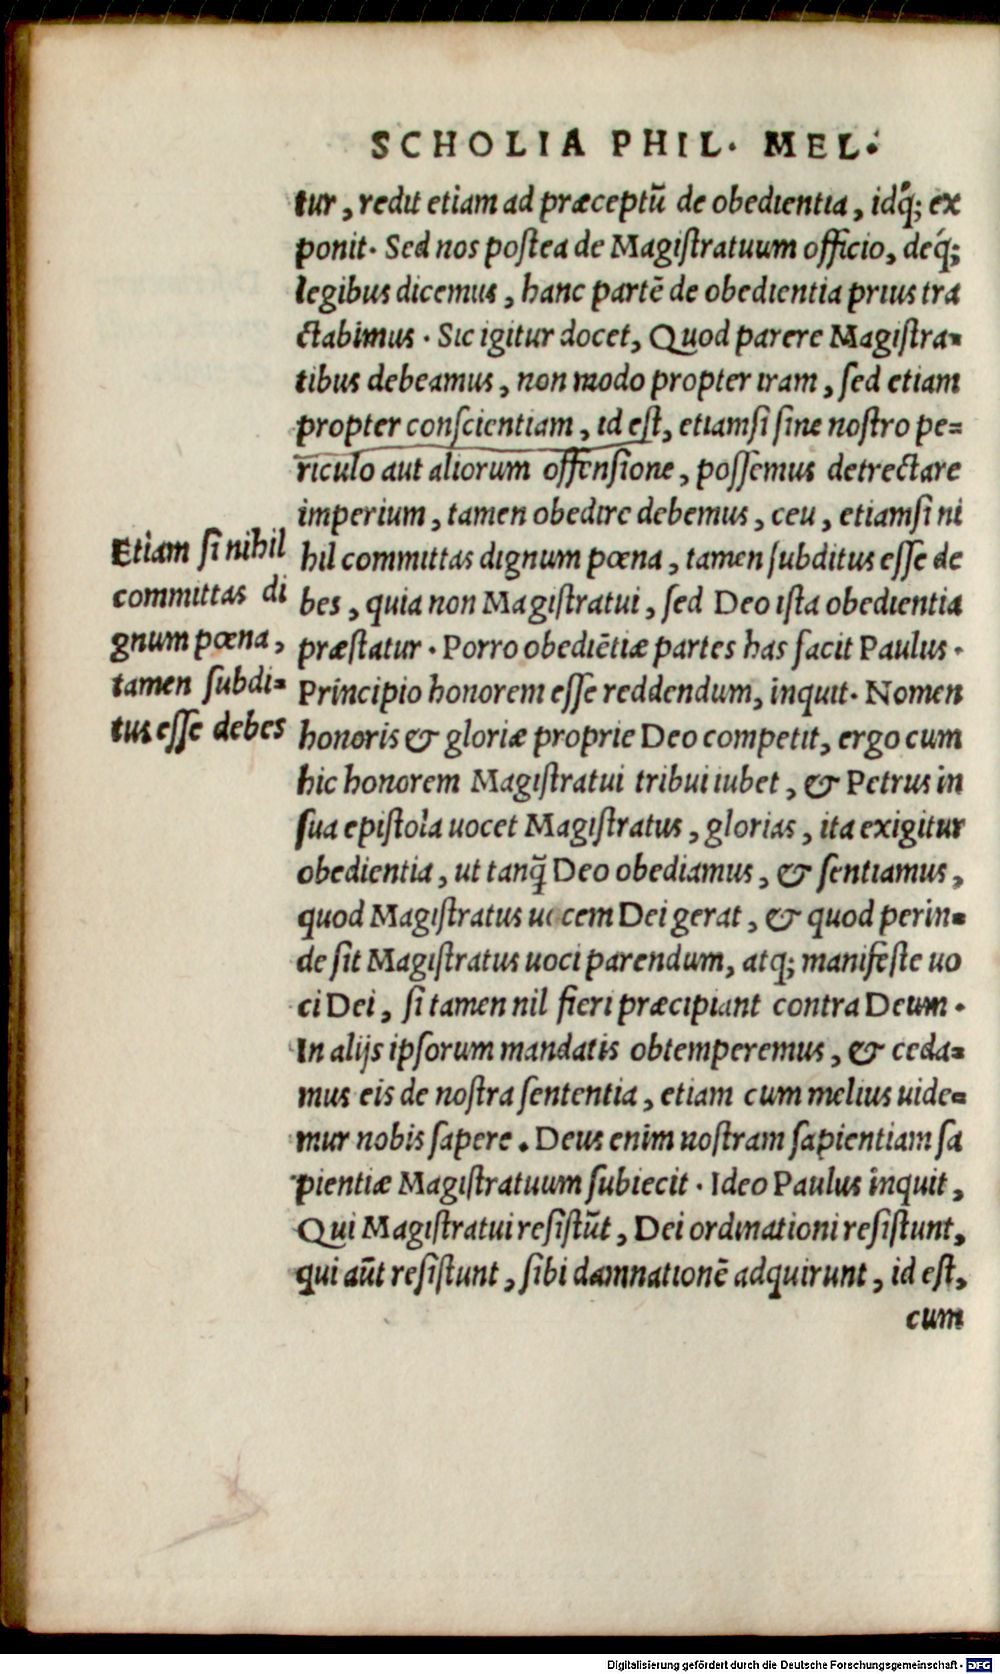 SCHOLIA PHIL. MEL.
tur, redit etiam ad præceptū de obedientia, idq́; ex
ponit. Sed nos postea de Magistratuum officio, deq́;
legibus dicemus, hanc partē de obedientia prius tra
ctabimus. Sic igitur docet, Quod parere Magistra=
tibus debeamus, non modo propter iram, sed etiam
propter conscientiam, id est, etiamsi sine nostro pe=
riculo aut aliorum offensione, possemus detrectare
imperium, tamen obedire debemus, ceu, etiamsi ni
hil committas dignum pœna, tamen subditus esse de
bes, quia non Magistratui, sed Deo ista obedientia
præstatur. Porro obediētiæ partes has facit Paulus.
Principio honorem esse reddendum, inquit. Nomen
honoris & gloriæ proprie Deo competit, ergo cum
hic honorem Magistratui tribui iubet, & Petrus in
sua epistola uocet Magistratus, glorias, ita exigitur
obedientia, ut tanq̄ Deo obediamus, & sentiamus,
quod Magistratus uocem Dei gerat, & quod perin=
de sit Magistratus uoci parendum, atq; manifeste uo
ci Dei, si tamen nil fieri præcipiant contra Deum.
In alijs ipsorum mandatis obtemperemus, & ceda=
mus eis de nostra sententia, etiam cum melius uide=
mur nobis sapere. Deus enim nostram sapientiam sa
pientiæ Magistratuum subiecit. Ideo Paulus inquit,
Qui Magistratui resistūt, Dei ordinationi resistunt,
qui aūt resistunt, sibi damnationē adquirunt, id est,
cum
Etiam si nihil
committas di
gnum pœna,
tamen subdi=
tus esse debes
Digitalisierung gefördert durch die Deutsche Forschungsgemeinschaft - DFG